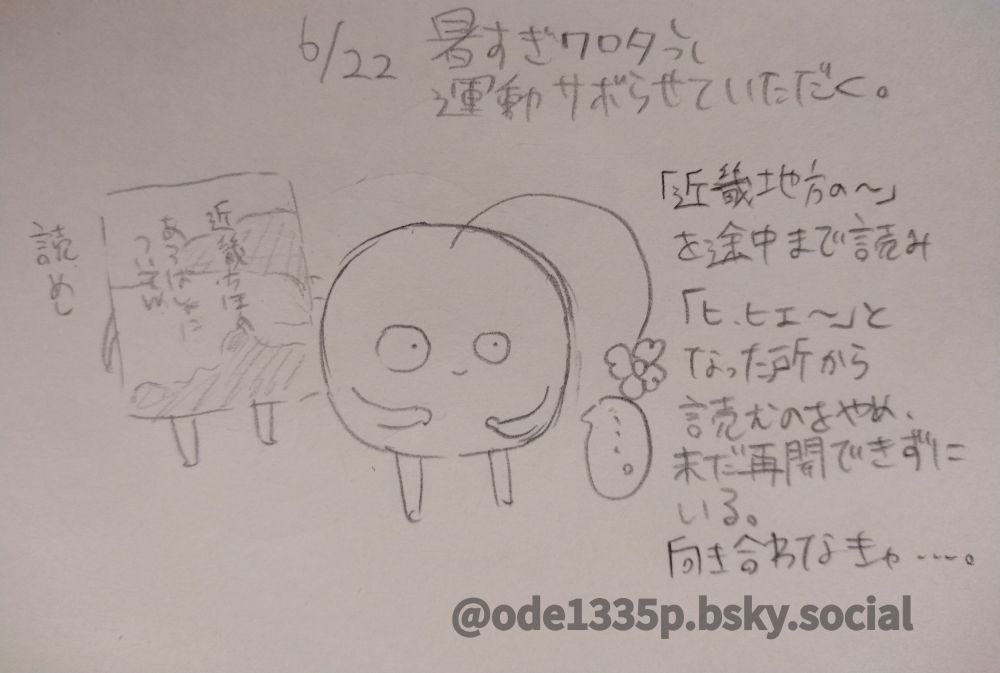 6/22 暑すぎワロタうし
運動サボらせていただく。
「近畿地方の〜」
を途中まで読み
「ヒ、ヒエ〜」と
なった所から
読むのをやめ、
未だ再開できずに
いる。
向き合わなきゃ……。
読めし
近畿ちほーの
あるばしょに
ついてw
……。
@ode1335p.bsky.social